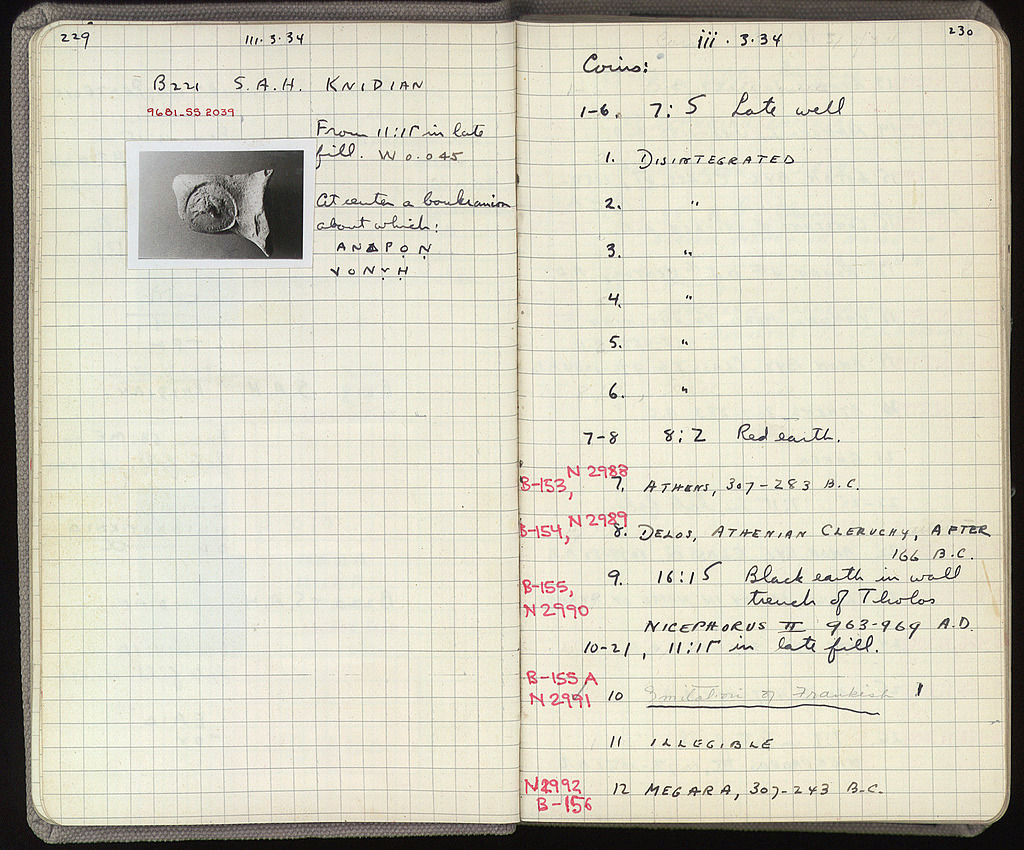 229
III·3·34
B221 S.A.H. KNIDIAN
9681_SS 2039
From 11:1Γ in late
fill. W 0.045
At center a boukranion
about which:
ΑΝΔΡΟ̣Ν̣
ΥΟΝΥ̣Η̣
iii·3·34
230
Coins:
1-6. 7:5 Late well
1. DISINTEGRATED
2. "
3. "
4. "
5. "
6. "
7-8 8:Z Red earth.
B-153, N 2988
7. ATHENS, 307-283 B.C.
B-154, N 2989
8. DELOS, ATHENIAN CLERUCHY, AFTER
166 B.C.
9. 16:15 Black earth in wall
B-155,
trench of Tholos
N 2990
NICEPHORUS II 963-969 A.D.
10-21, 11:1Γ in late fill.
B-155 A
N 2991 10 Imitation of Frankish 1
11 ILLEGIBLE
N2992
B-156
12 MEGARA, 307-243 B.C.